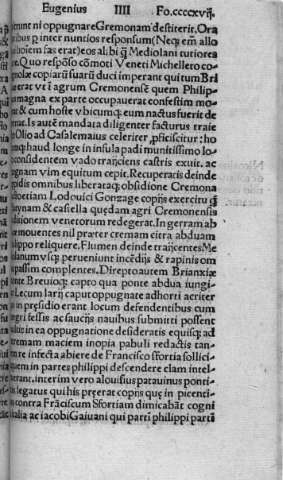 Eugenius IIII Fo.ccccxvij.
erunt ni oppugnare Gremonam destiterit. Ora
tibus p inter nuncios responsum (Neq; em̄ allo
boiem fas erat) eos alibi q̄ Mediolani turiores
e. Quo respōso cōmoti Veneti Michelleto co
molæ copiarū suarū duci imperant qui tum Bri
erat vt i agrum Cremonensē quem Philip
magna ex parte occupauerat confestim mo
& cum hoste vbicumq; eum nactus fuerit de
Is autē mandata diligenter facturus traie
Ollio ad Casalemaius celeriter pficiscitur: ho
haud longe in insula padi munitissimo lo
considentem vado trāsciens castris exuit. ac
gnam vim equitum cepit. Recuperatis deinde
pidis omnibus liberataq; obsidione Cremona
Lodouici Gonzagę copijs exercitu q̄
& casella quedam agri Cremonensis
in venetorum redegerat. In gerram ab
mouentes nil præter cremam citra abduam
lippo reliquere. Flumen deinde traijcentes Me
lanum vsq; perueniunt incēdijs & rapinis om
passim complentes. Direpto autem Brianxiæ
nte Breuioq; capro qua ponte abdua iungi
Lecum larij caput oppugnate adhorti acriter
in presidio erant locum defendentibus cum
fessis ac saucijs nauibus submitti possent
in ea oppugnatione desideratis equisq; ad
tremam maciem inopia pabuli redactis tan
re infecta abiere de Francisco sfortia sollici
quem in partes philippi descendere clam intel
erant. interim vero aloiusius patauinus ponti
legatus qui his preerat copijs quę in picenti
contra Frāciscum Sfortiam dimicabāt cogni
italia ac iacobi Gaiuani qui parti philippi parti